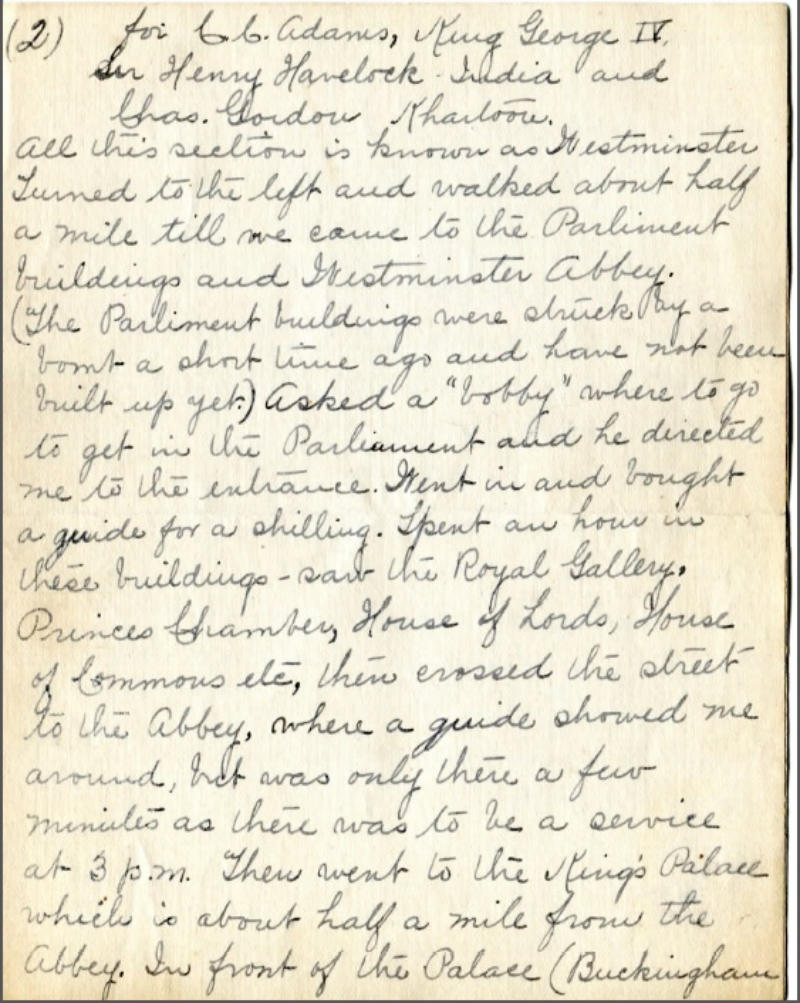 (2) for C.C. Adams, King George IV.
Sir Henry Havelock - India and
Chas. Gordon Khartoum.
All this section is known as Westminster
Turned to the left and walked about half
a mile till we came to the Parliment
buildings and Westminster Abbey.
(The Parliment buildings were struck by a
bomb a short time ago and have not been
built up yet.) Asked a "bobby" where to go
to get in the Parliament and he directed
me to the entrance. Went in and bought
a guide for a shilling. Spent an hour in
these buildings - saw the Royal Gallery,
Princes Chamber, House of Lords, House
of Commons etc, then crossed the street
to the Abbey, where a guide showed me
around, but was only there a few
minutes as there was to be a service
at 3 p.m. Then went to the King's Palace
which is about half a mile from the
Abbey. In front of the Palace (Buckingham